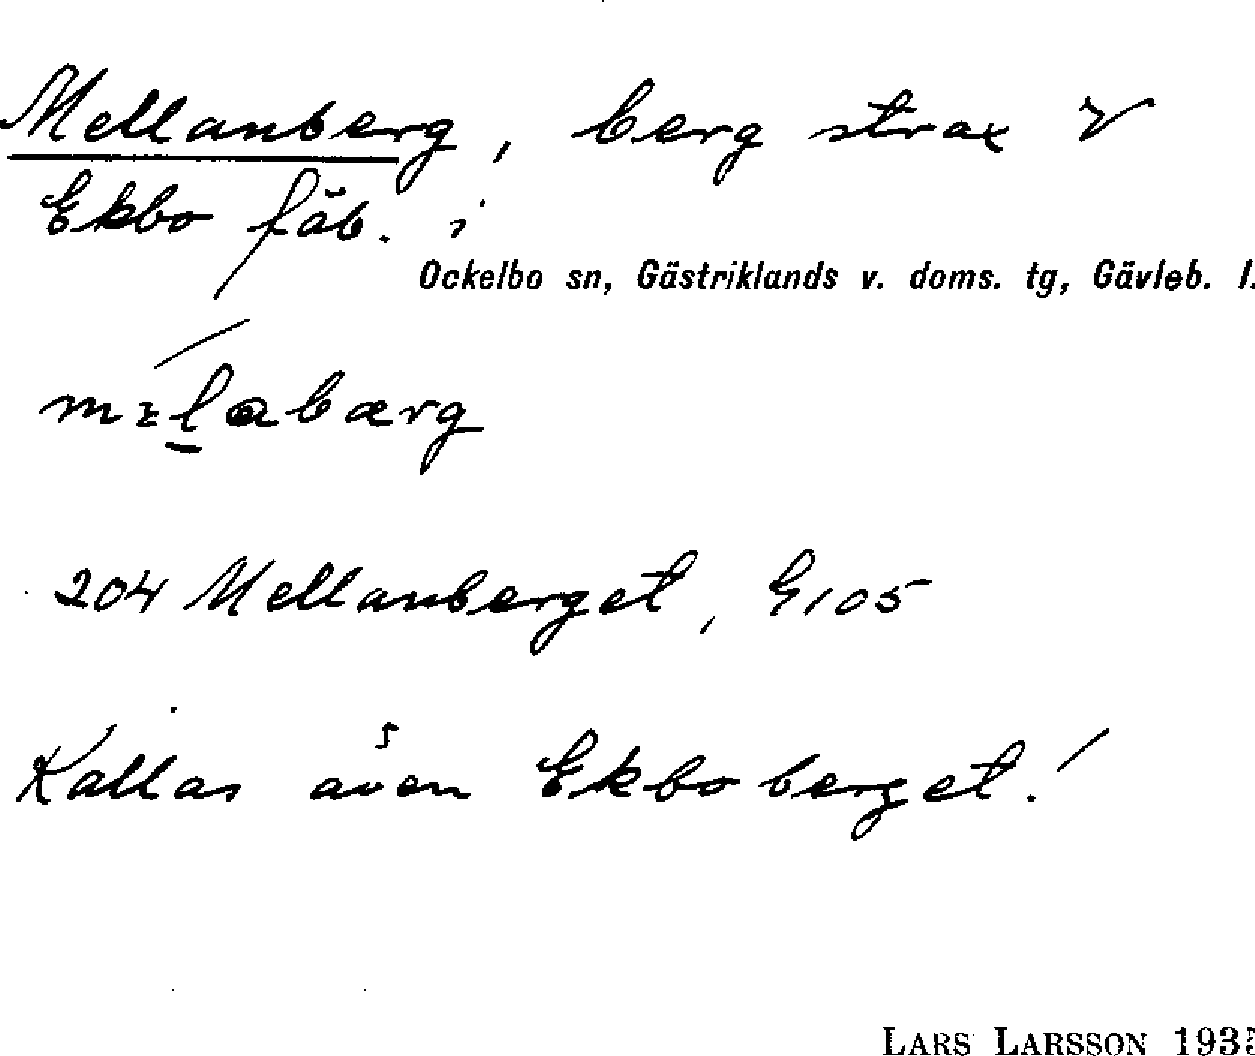 Mellanberg, berg strax V
Ekbo fäb. i
Ockelbo sn, Gästriklands v. doms. tg, Gävleb. l.
204 Mellanberget, G105
Kallas även Ekboberget!
LARS LARSSON